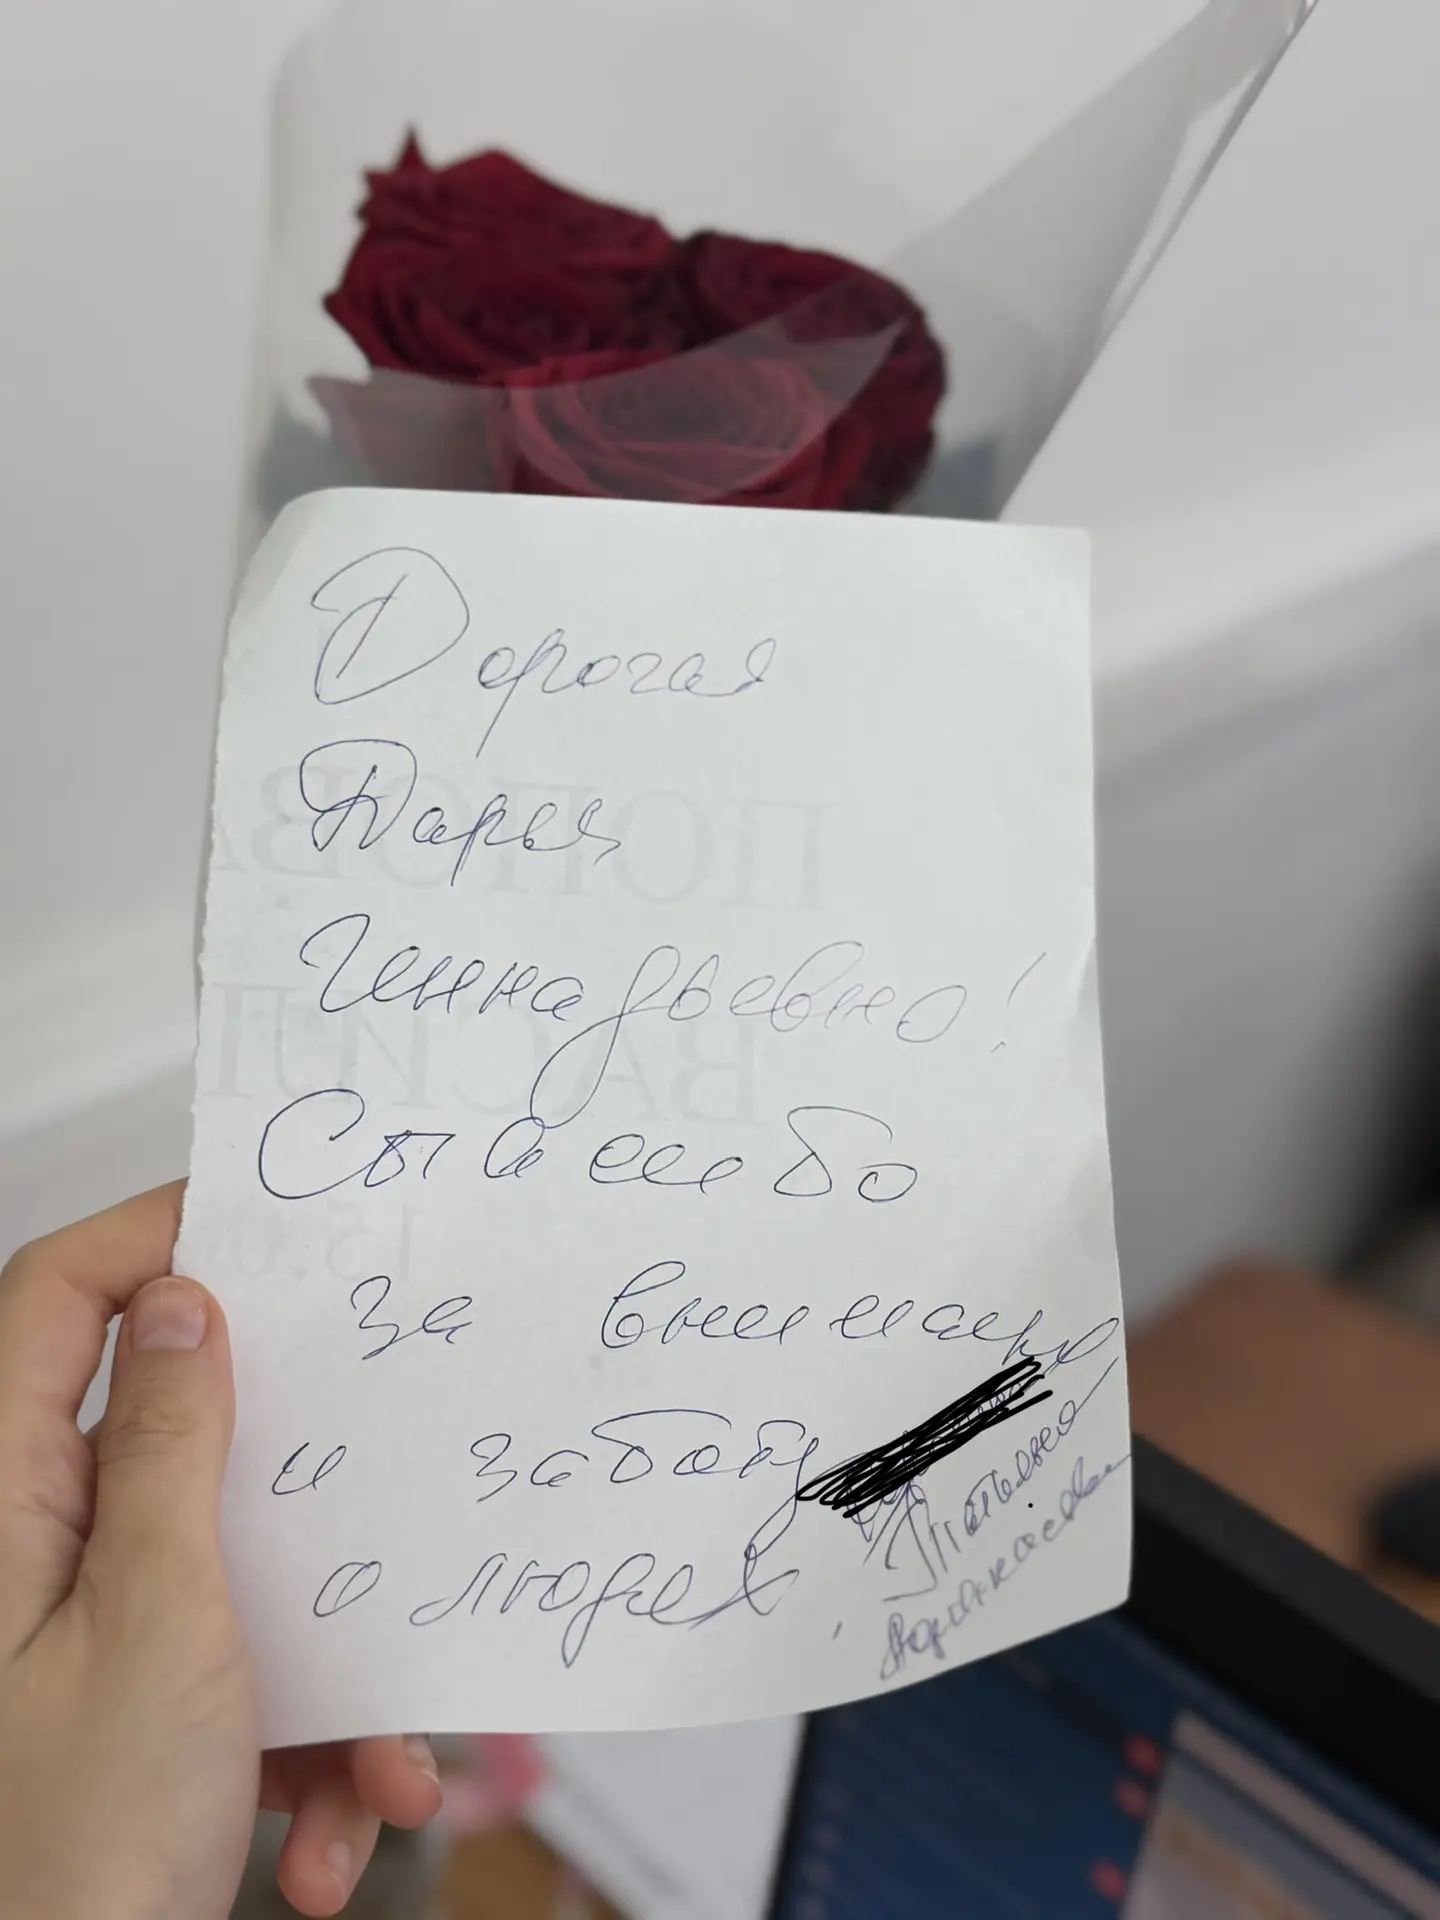 Дорогая
Дарья
Геннадьевна!
Спасибо
за внимание
и заботу
о людях.
Татьяна
Афанасьева
ПОПОВА
ВАСИЛ
15.0